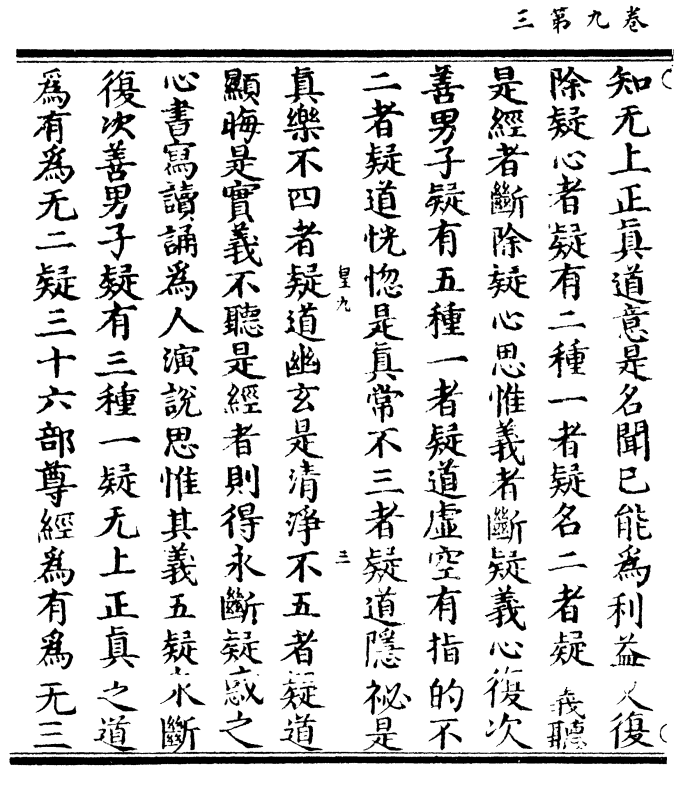 三第九卷
知无上正眞道意是名聞已能爲利益又復
除疑心者疑有二種一者疑名二者疑義聽
是經者斷除疑心思惟義者斷疑義心復次
善男子疑有五種一者疑道虛空有指的不
二者疑道恍惚是眞常不三者疑道隱祕是
皇九
三
眞樂不四者疑道幽玄是清淨不五者疑道
顯晦是實義不聽是經者則得永斷疑惑之
心書寫讀誦爲人演說思惟其義五疑永斷
復次善男子疑有三種一疑无上正眞之道
爲有爲无二疑三十六部尊經爲有爲无三